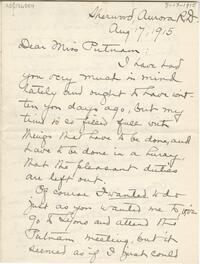 Sherwood, Aurora R.D.
Aug 17, 1915
Dear Miss Putnam:
I have had
you very much in mind
lately and ought to have writ-
ten you days ago, but my
time is so filled full with
things that have to be done, and
have to be done in a hurry
that the pleasant duties
are left out.
Of course I wanted to do
just as you wanted me to,
go to Lyons and attend the
Putnam meeting, but it
seemed as if I just could